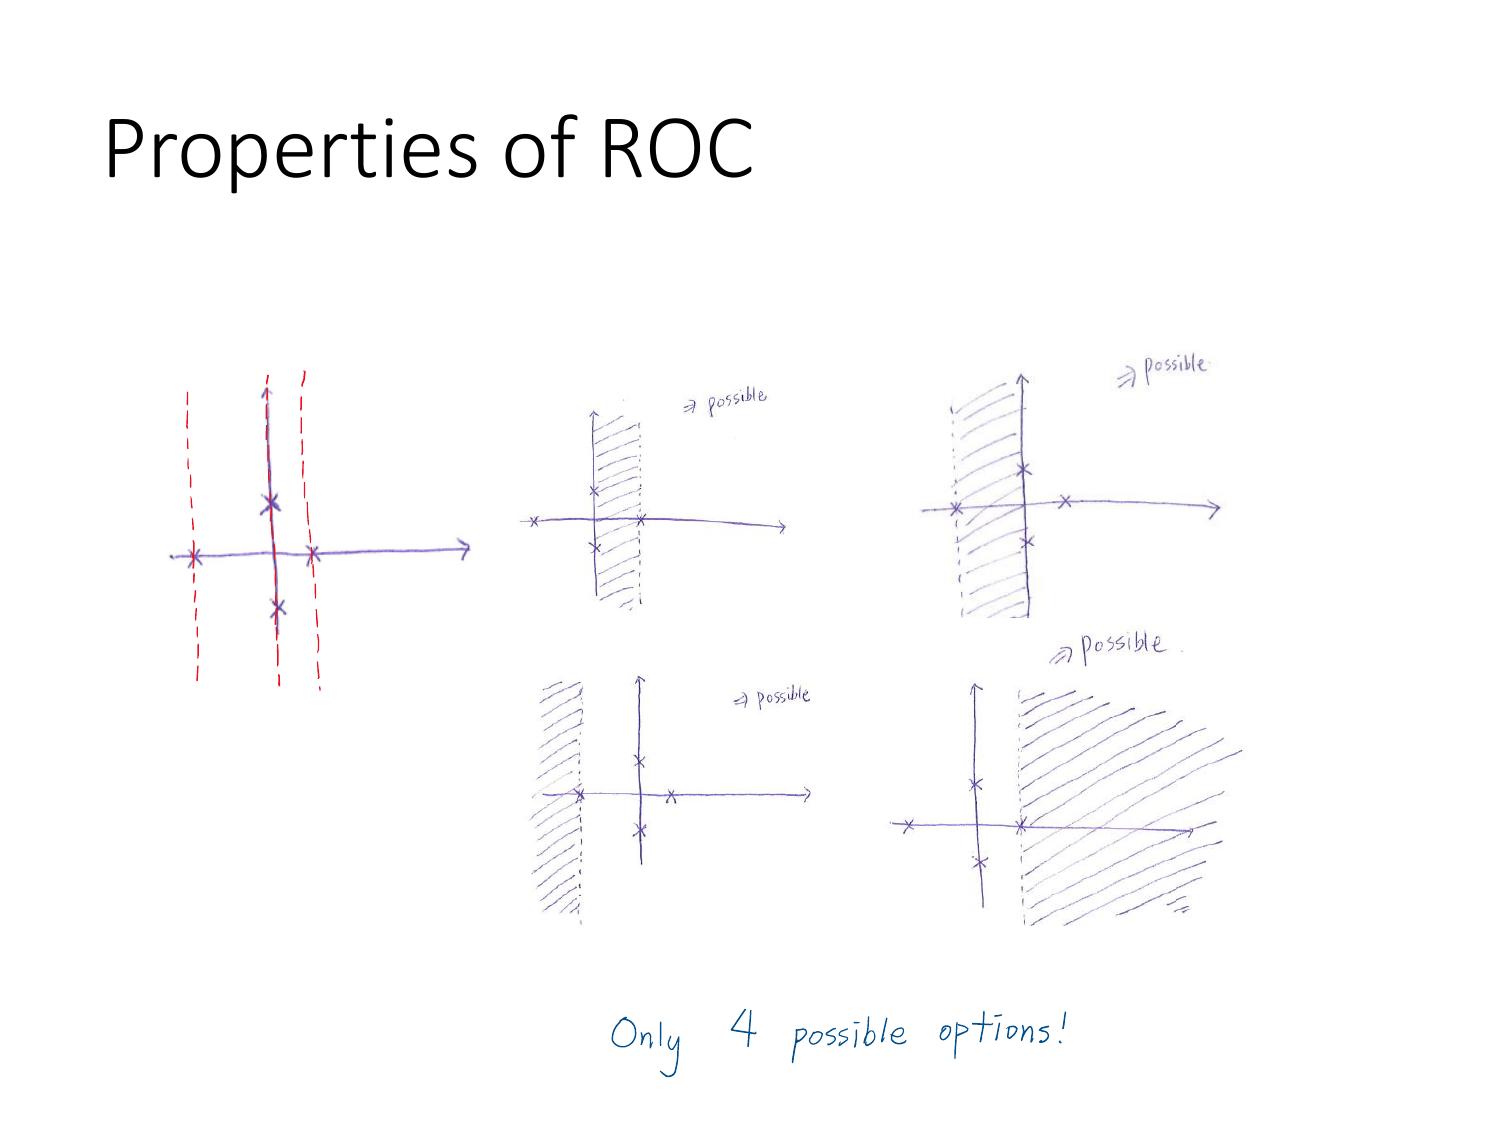 Properties of ROC
⇒ possible
⇒ possible
⇒ possible
⇒ possible
Only 4 possible options!